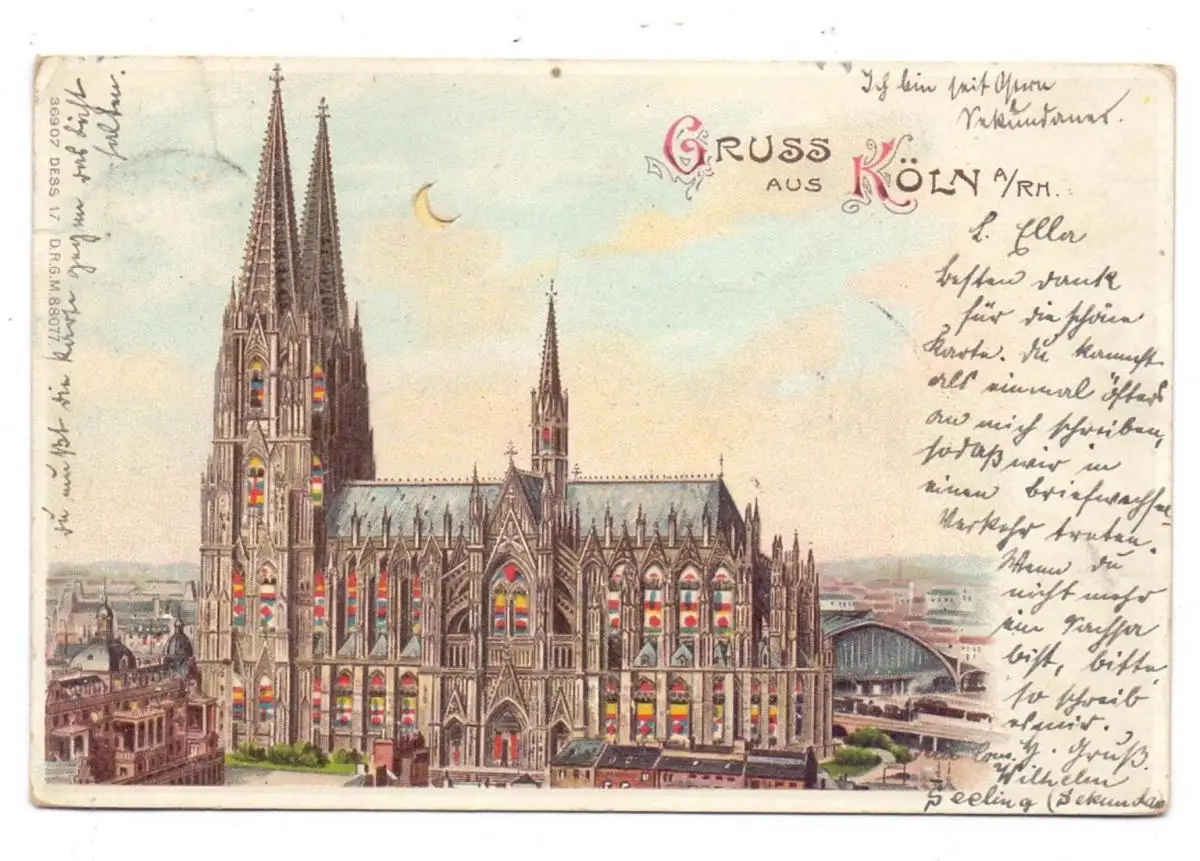 Ich bin seit Ostern
Sekundaner.
GRUSS
AUS KÖLN A/RH.
L. Ella
besten dank
für die schöne
Karte. Du kannst
als einmal öfters
an mich schreiben,
sodaß wir in
einen Briefwechsel-
Verkehr treten.
Wenn du
nicht mehr
in
bist, bitte
so schreib
es mir.
H. Gruß.
Wilhelm
Seeling (Sekunda
du mußt die Karte gegen das Licht
halten.
36907 DESS 17 D.R.G.M. 88077